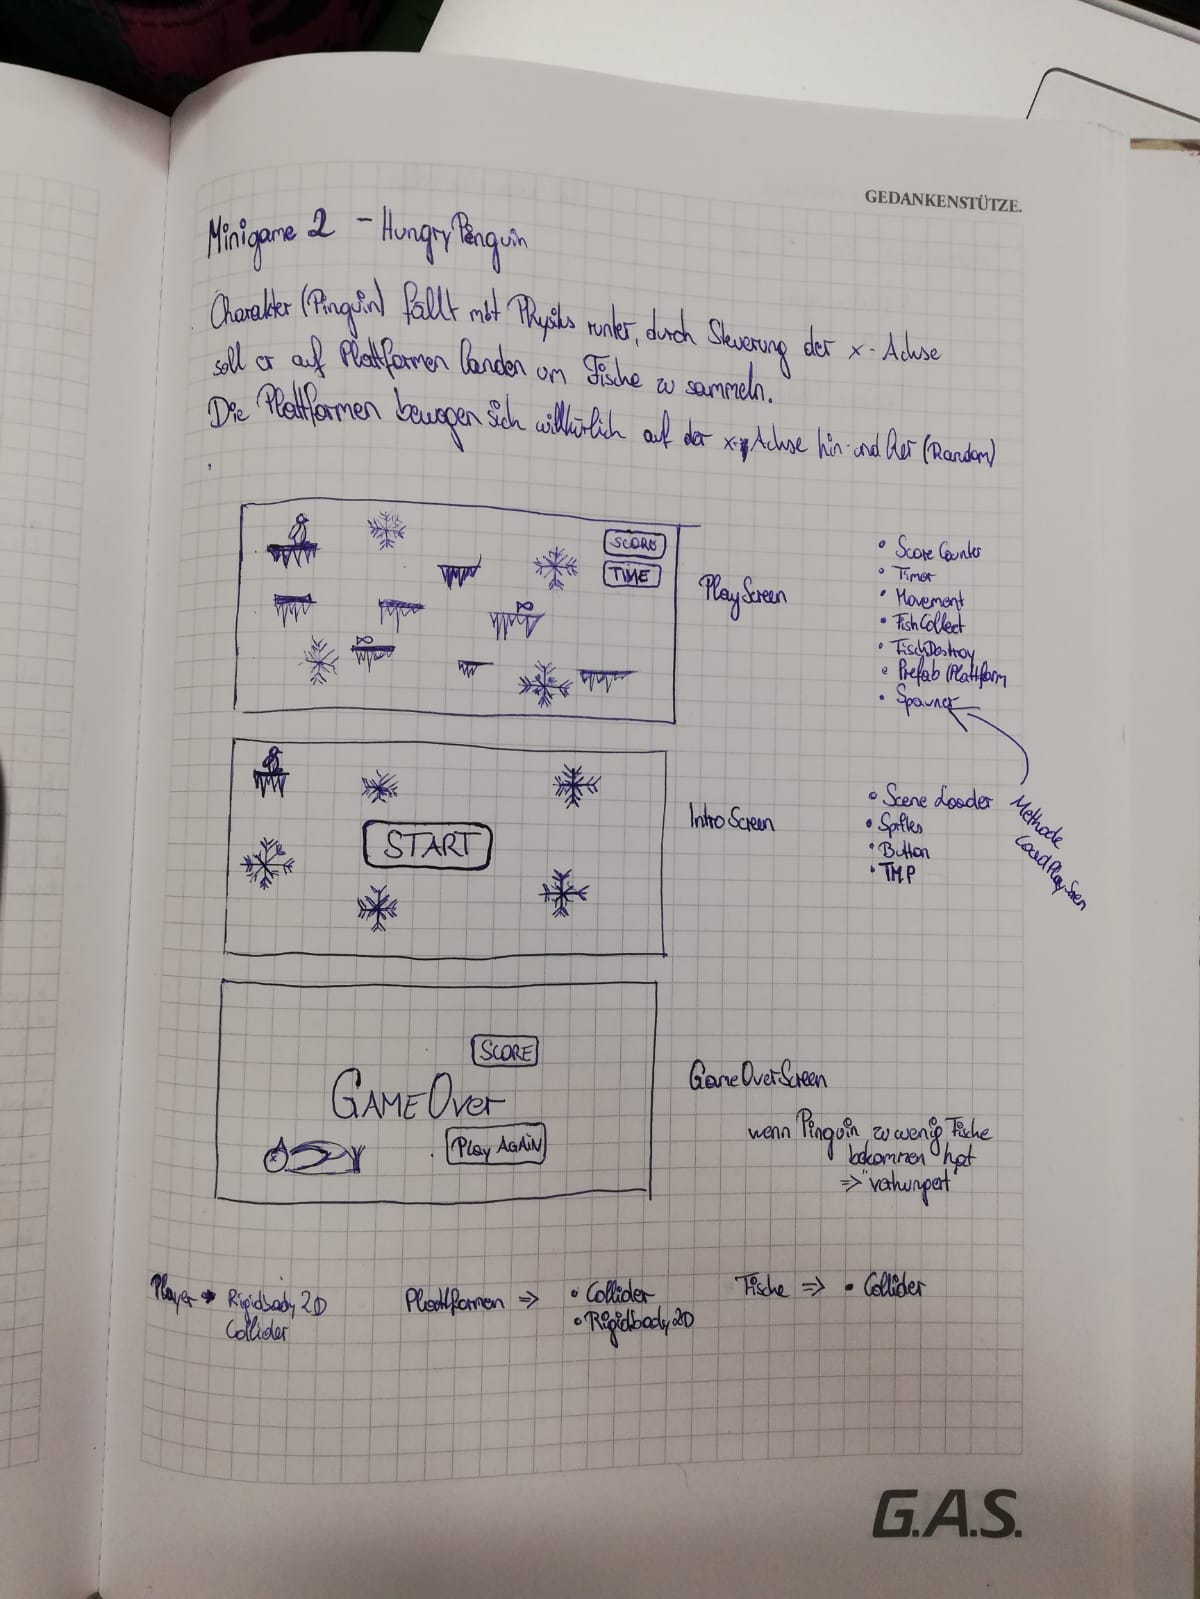 GEDANKENSTÜTZE.
Minigame 2 - HungryPenguin
Charakter (Pinguin) fällt mit Physiks runter, durch Steuerung der x-Achse
soll er auf Plattformen landen um Fische zu sammeln.
Die Plattformen bewegen sich willkürlich auf der x-Achse hin-und her (Random)
SCORE
TIME
PlayScreen
• Score Counter
• Timer
• Movement
• FishCollect
• FischDestroy
• Prefab Plattform
• Spawner
START
IntroScreen
• Scene Loader
• Sprites
• Button
• TMP
Methode
SCORE
GAME Over
Play AGAiN
GameOverScreen
wenn Pinguin zu wenig Fische
bekommen hat
=> "verhungert"
Player → Rigidbody 2D
Collider
Plattformen => • Collider
• Rigidbody 2D
Fische => • Collider
G.A.S.